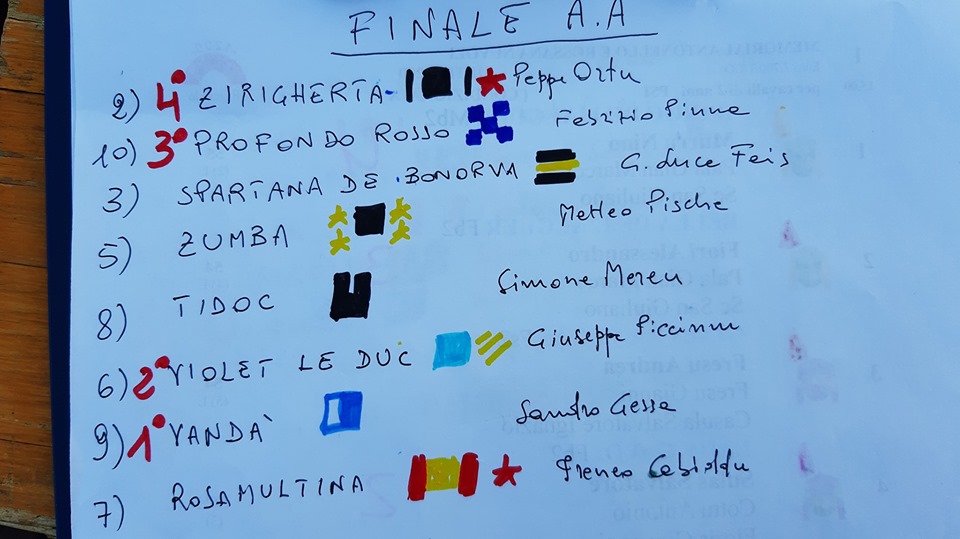 FINALE A.A
2) 4° ZIRIGHERTA - Peppe Ortu
10) 3° PROFONDO ROSSO Fabrizio Pinna
3) SPARTANA DE BONORVA G. Luce Feis
5) ZUMBA Matteo Pische
8) TIDOC Simone Mereu
6) 2° VIOLET LE DUC Giuseppe Piccinnu
9) 1° VANDÀ Sandro Gessa
7) ROSAMULTINA